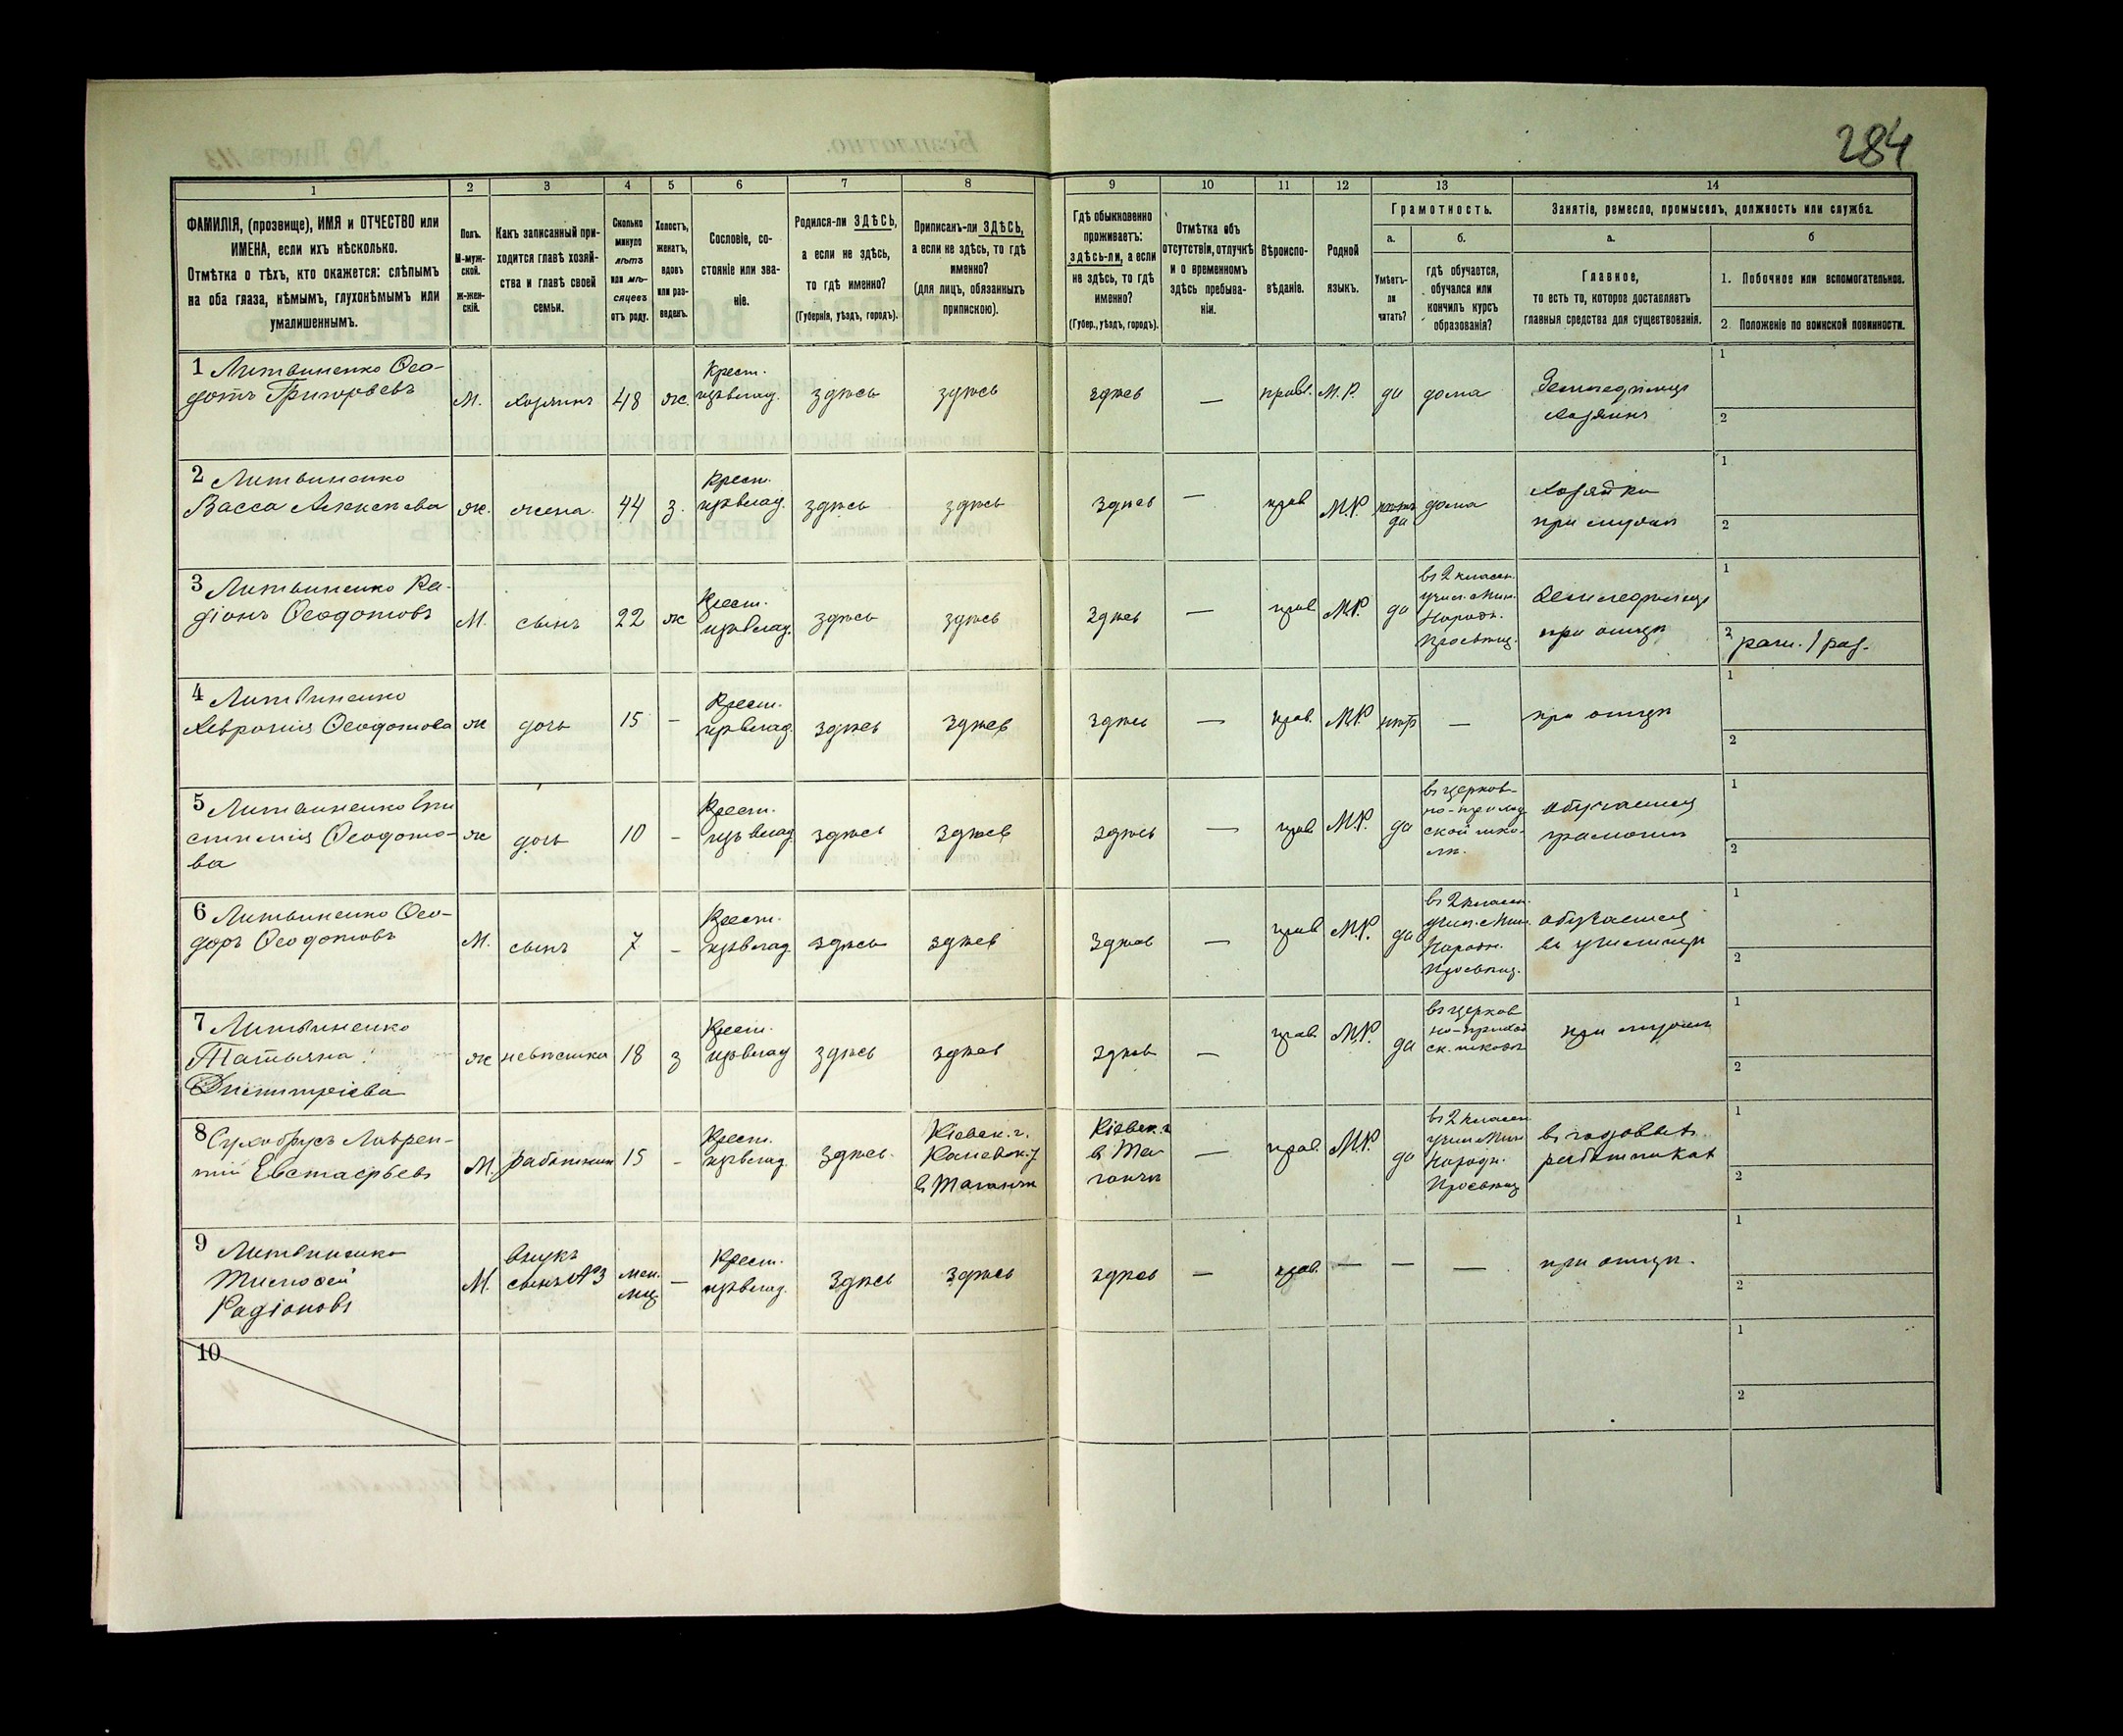 284
1 2 3 4 5 6 7 8 9 10 11 12 13 14
ФАМИЛІЯ, (прозвище), ИМЯ и ОТЧЕСТВО или
ИМЕНА, если ихъ нѣсколько.
Отмѣтка о тѣхъ, кто окажется: слѣпымъ
на оба глаза, нѣмымъ, глухонѣмымъ или
умалишеннымъ.
Полъ.
М-муж-
ской.
Ж-жен-
скій.
Какъ записанный при-
ходится главѣ хозяй-
ства и главѣ своей
семьи.
Сколько
минуло
лѣтъ
или мѣ-
сяцевъ
отъ роду.
Холостъ,
женатъ,
вдовъ
или раз-
веденъ.
Сословіе, со-
стояніе или зва-
ніе.
Родился-ли ЗДѢСЬ,
а если не здѣсь,
то гдѣ именно?
(Губернія, уѣздъ, городъ).
Приписанъ-ли ЗДѢСЬ,
а если не здѣсь, то гдѣ
именно?
(для лицъ, обязанныхъ
припискою).
Гдѣ обыкновенно
проживаетъ:
здѣсь-ли, а если
не здѣсь, то гдѣ
именно?
(Губер., уѣздъ, городъ).
Отмѣтка объ
отсутствіи, отлучкѣ
и о временномъ
здѣсь пребыва-
ніи.
Вѣроиспо-
вѣданіе.
Родной
языкъ.
Грамотность.
а.
Умѣетъ-
ли
читать?
б.
гдѣ обучается,
обучался или
кончилъ курсъ
образованія?
Занятіе, ремесло, промыселъ, должность или служба.
а.
Главное,
то есть то, которое доставляетъ
главныя средства для существованія.
б
1. Побочное или вспомогательное.
2. Положеніе по воинской повинности.
1 Литвиненко Ѳео-
дотъ Григорьевъ
М. хозяинъ 48 ж. Крест. здѣсь здѣсь здѣсь — правл. М.Р. да дома
Земледѣлецъ
хозяинъ
1
2
2 Литвиненко
Васса Алексѣева
ж. жена 44 з. Крест. здѣсь здѣсь здѣсь — прав М.Р. да дома
Хозяйка
при мужѣ
1
2
3 Литвиненко Ра-
діонъ Ѳеодотовъ
М. сынъ 22 ж Крест. здѣсь здѣсь здѣсь — прав М.Р. да
въ 2 классн.
учил. Мин.
Народн.
Просвѣщ.
Земледѣлецъ
при отцѣ
1
2 ратн. 1 раз.
4 Литвиненко
Хевронія Ѳеодотова
ж дочь 15 – Крест. здѣсь здѣсь здѣсь — прав. М.Р. нѣтъ —
при отцѣ
1
2
5 Литвиненко
Ѳеодото-
ва
ж дочь 10 – Крест. здѣсь здѣсь здѣсь — прав М.Р. да
въ церков-
но-приход
ской шко-
лѣ.
обучается
грамотѣ
1
2
6 Литвиненко Ѳео-
доръ Ѳеодотовъ
М. сынъ 7 – Крест. здѣсь здѣсь здѣсь — прав М.Р. да
въ 2 классн.
учил. Мин.
Народн.
Просвѣщ.
обучается
въ училищѣ
1
2
7 Литвиненко
Татьяна
Дмитріева
ж невѣстка 18 з Крест. здѣсь здѣсь здѣсь — прав. М.Р. да
въ церков
но-приход
ск. школѣ
при мужѣ
1
2
8 Сухобрусъ Лаврен-
тій Евстафьевъ
М. работникъ 15 – Крест. здѣсь
Кіевск. г.
Каневск. у.
в Таганчѣ
Кіевск. г
в Та-
ганчѣ
— прав. М.Р. да
въ 2 классн
учил Мин
Народн.
Просвѣщ
въ годовыхъ
работникахъ
1
2
9 Литвиненко
Тимофей
Радіоновъ
М.
внукъ
сынъ №3
Крест. здѣсь здѣсь здѣсь — прав. — — —
при отцѣ.
1
2
10
1
2